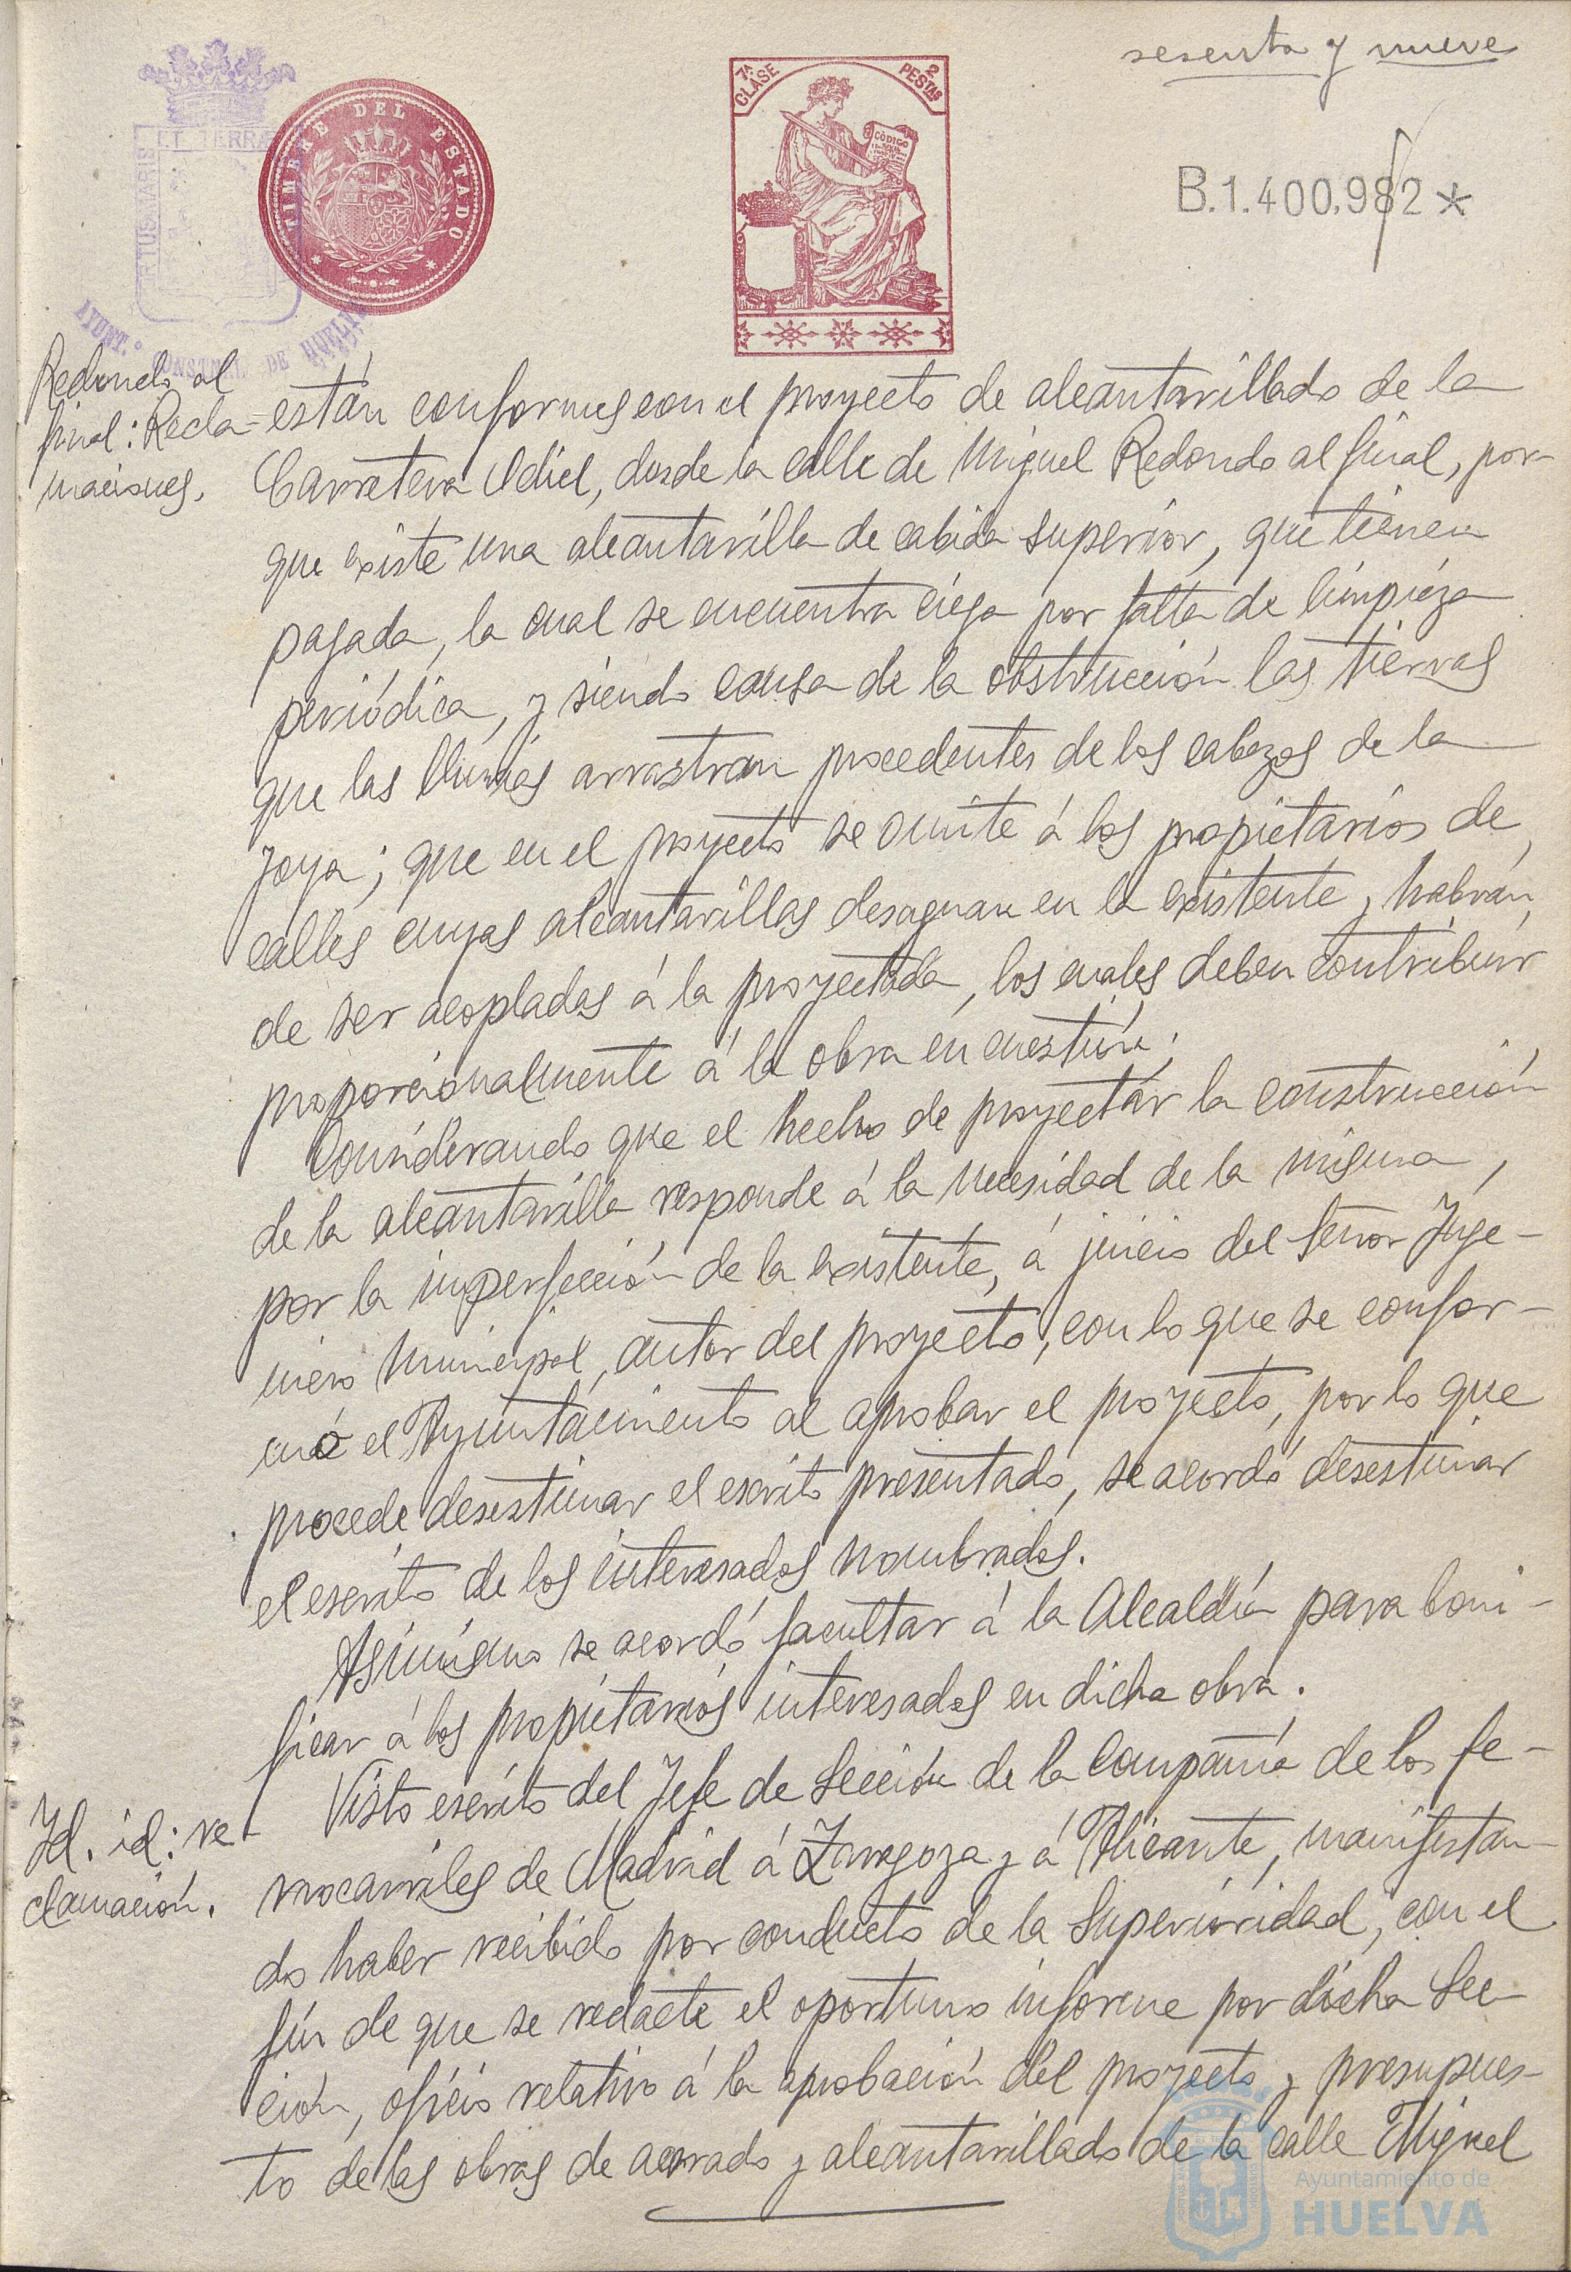 sesenta y nueve
7ª CLASE
2 PESTAS
CODIGO
TIMBRE DEL ESTADO
B.1.400.982*
ET TERRÆ
PORTUS MARIS
AYUNT.º CONSTNAL DE HUELVA
Redondo al
final: Recla-
maciones.
están conformes con el proyecto de alcantarillado de la
Carretera Odiel, desde la calle de Miguel Redondo al final, por-
que existe una alcantarilla de cabida superior, que tienen
pagada, la cual se encuentra ciega por falta de limpieza
periódica, y siendo causa de la obstrucción las tierras
que las lluvias arrastran procedentes de los cabezos de la
Joya; que en el proyecto se omite á los propietarios de
calles cuyas alcantarillas desaguan en la existente y habrán
de ser acopladas á la proyectada, los cuales deben contribuir
proporcionalmente á la obra en cuestión;
Considerando que el hecho de proyectar la construcción
de la alcantarilla responde á la necesidad de la misma,
por la imperfección de la existente, á juicio del Señor Inge-
niero Municipal, autor del proyecto, con lo que se confor-
mó el Ayuntamiento al aprobar el proyecto, por lo que
procede desestimar el escrito presentado, se acordó desestimar
el escrito de los interesados nombrados.
Asimismo se acordó facultar á la Alcaldía para boni-
ficar á los propietarios interesados en dicha obra.
Id. id: re-
clamación.
Visto escrito del Jefe de Sección de la Compañía de los fe-
rrocarriles de Madrid á Zaragoza y á Alicante, manifestan-
do haber recibido por conducto de la Superioridad, con el
fin de que se redacte el oportuno informe por dicha Sec-
ción, oficio relativo á la aprobación del proyecto y presupues-
to de las obras de acerado y alcantarillado de la calle Miguel
Ayuntamiento de
HUELVA